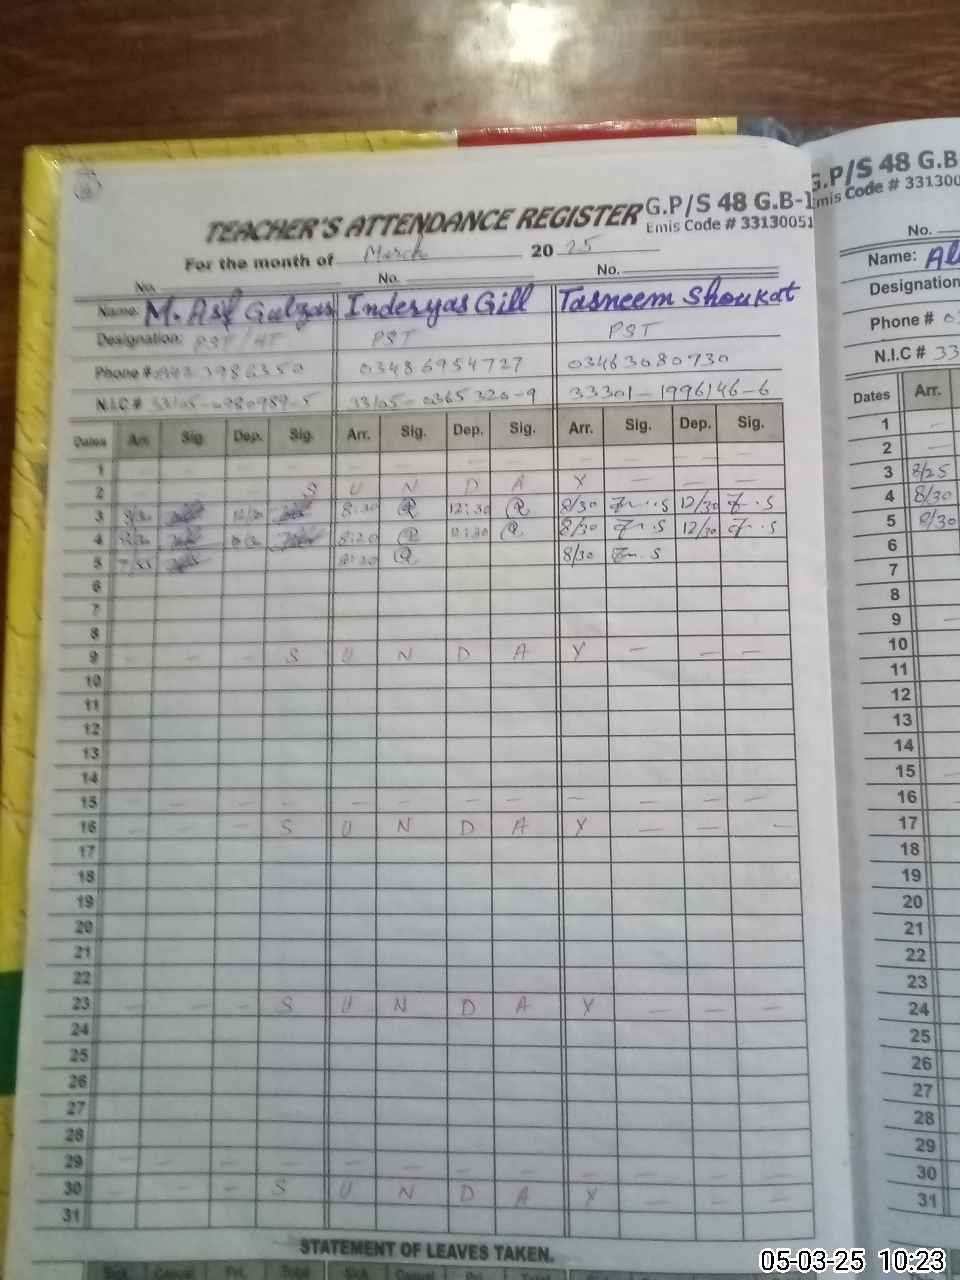 TEACHER'S ATTENDANCE REGISTER G.P/S 48 G.B-1
Emis Code # 33130051
For the month of March 20 25
No. No. No.
Name: M. Asif Gulzar Inderyas Gill Tasneem Shoukat
Designation: PST PST PST
Phone # 03486954727 03463080730
N.I.C # 33105-0365320-9 33301-1996146-6
Dates Arr. Sig. Dep. Sig. Arr. Sig. Dep. Sig. Arr. Sig. Dep. Sig.
1 — — — — — — — — — — —
2 — — — S U N D A Y
3 8/30 12/30 8:30 12:30 8/30 12/30
4 8:20 12:30 8/30 12/30
5 8:20 8/30
6
7
8
9 — — — S U N D A Y — — —
10
11
12
13
14
15 — — — — — — — — — — — —
16 — — — S U N D A Y — — —
17
18
19
20
21
22
23 — — — S U N D A Y — — —
24
25
26
27
28
29 — — — — — — — — — — — —
30 — — — S U N D A Y — — —
31
STATEMENT OF LEAVES TAKEN.
G.P/S 48 G.B
Emis Code # 33130
No.
Name: Al
Designation
Phone # 03
N.I.C # 33
Dates Arr.
1 —
2 —
3 8/25
4 8/30
5 8/30
6
7
8
9 —
10
11
12
13
14
15 —
16
17
18
19
20
21
22
23
24
25
26
27
28
29
30
31
05-03-25 10:23